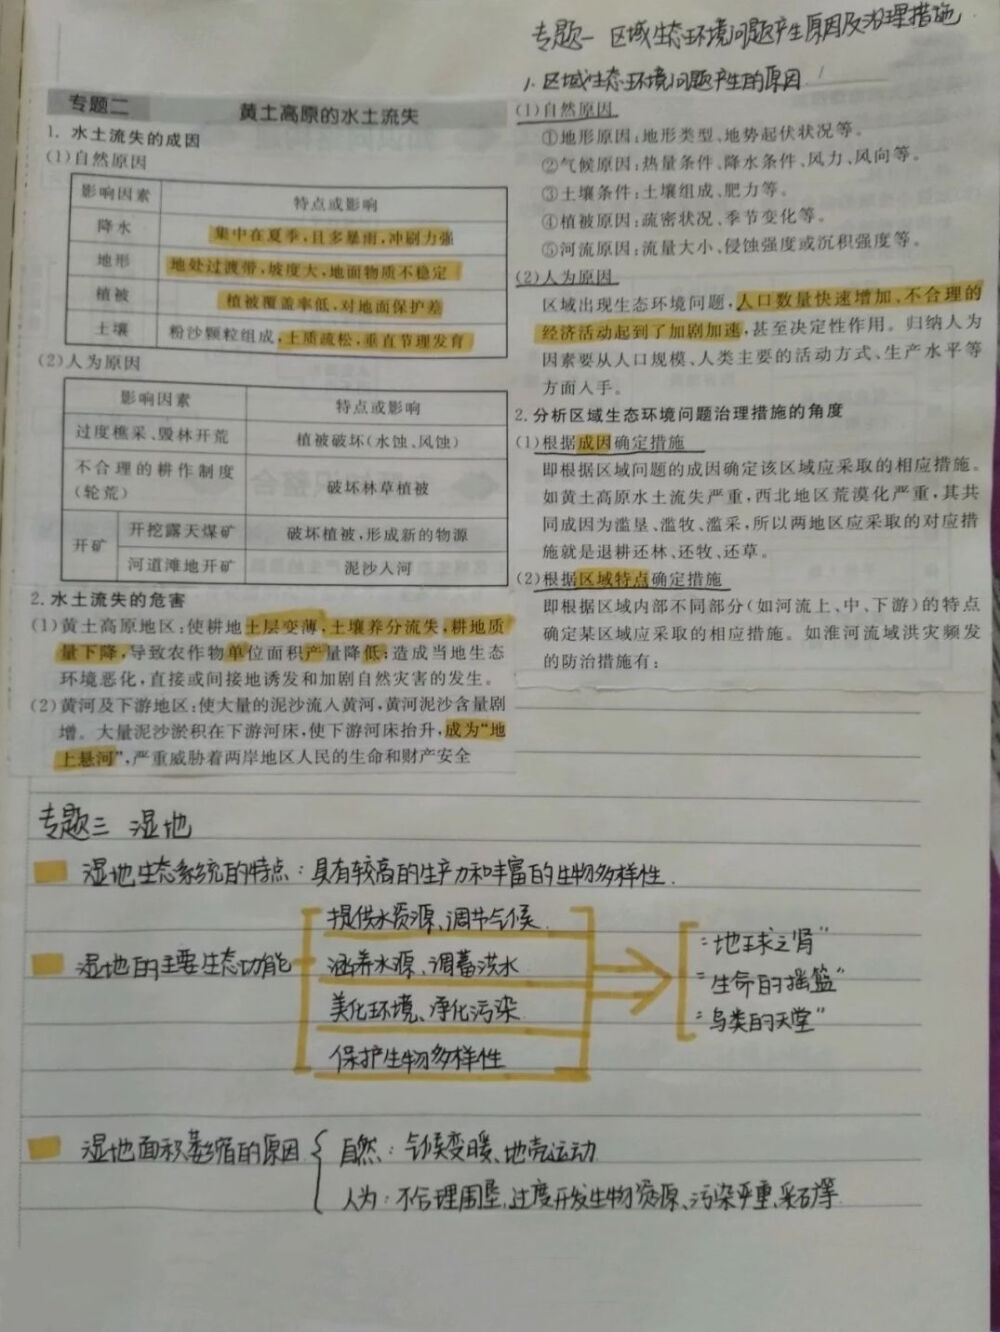 专题一 区域生态环境问题产生原因及治理措施
1. 区域生态环境问题产生的原因
(1)自然原因
①地形原因:地形类型、地势起伏状况等。
②气候原因:热量条件、降水条件、风力、风向等。
③土壤条件:土壤组成、肥力等。
④植被原因:疏密状况、季节变化等。
⑤河流原因:流量大小、侵蚀强度或沉积强度等。
(2)人为原因
区域出现生态环境问题,人口数量快速增加、不合理的
经济活动起到了加剧加速,甚至决定性作用。归纳人为
因素要从人口规模、人类主要的活动方式、生产水平等
方面入手。
2. 分析区域生态环境问题治理措施的角度
(1)根据成因确定措施
即根据区域问题的成因确定该区域应采取的相应措施。
如黄土高原水土流失严重,西北地区荒漠化严重,其共
同成因为滥垦、滥牧、滥采,所以两地区应采取的对应措
施就是退耕还林、还牧、还草。
(2)根据区域特点确定措施
即根据区域内部不同部分(如河流上、中、下游)的特点
确定某区域应采取的相应措施。如淮河流域洪灾频发
的防治措施有:
专题二 黄土高原的水土流失
1. 水土流失的成因
(1)自然原因
影响因素 特点或影响
降水 集中在夏季,且多暴雨,冲刷力强
地形 地处过渡带,坡度大,地面物质不稳定
植被 植被覆盖率低,对地面保护差
土壤 粉沙颗粒组成,土质疏松,垂直节理发育
(2)人为原因
影响因素 特点或影响
过度樵采、毁林开荒 植被破坏(水蚀、风蚀)
不合理的耕作制度
(轮荒) 破坏林草植被
开矿 开挖露天煤矿 破坏植被,形成新的物源
河道滩地开矿 泥沙入河
2. 水土流失的危害
(1)黄土高原地区:使耕地土层变薄,土壤养分流失,耕地质
量下降,导致农作物单位面积产量降低;造成当地生态
环境恶化,直接或间接地诱发和加剧自然灾害的发生。
(2)黄河及下游地区:使大量的泥沙流入黄河,黄河泥沙含量剧
增。大量泥沙淤积在下游河床,使下游河床抬升,成为“地
上悬河”,严重威胁着两岸地区人民的生命和财产安全
专题三 湿地
湿地生态系统的特点:具有较高的生产力和丰富的生物多样性.
湿地的主要生态功能
提供水资源、调节气候
涵养水源、调蓄洪水
美化环境、净化污染
保护生物多样性
“地球之肾”
“生命的摇篮”
“鸟类的天堂”
湿地面积萎缩的原因
自然:气候变暖、地壳运动
人为:不合理围垦,过度开发生物资源、污染严重,采石等